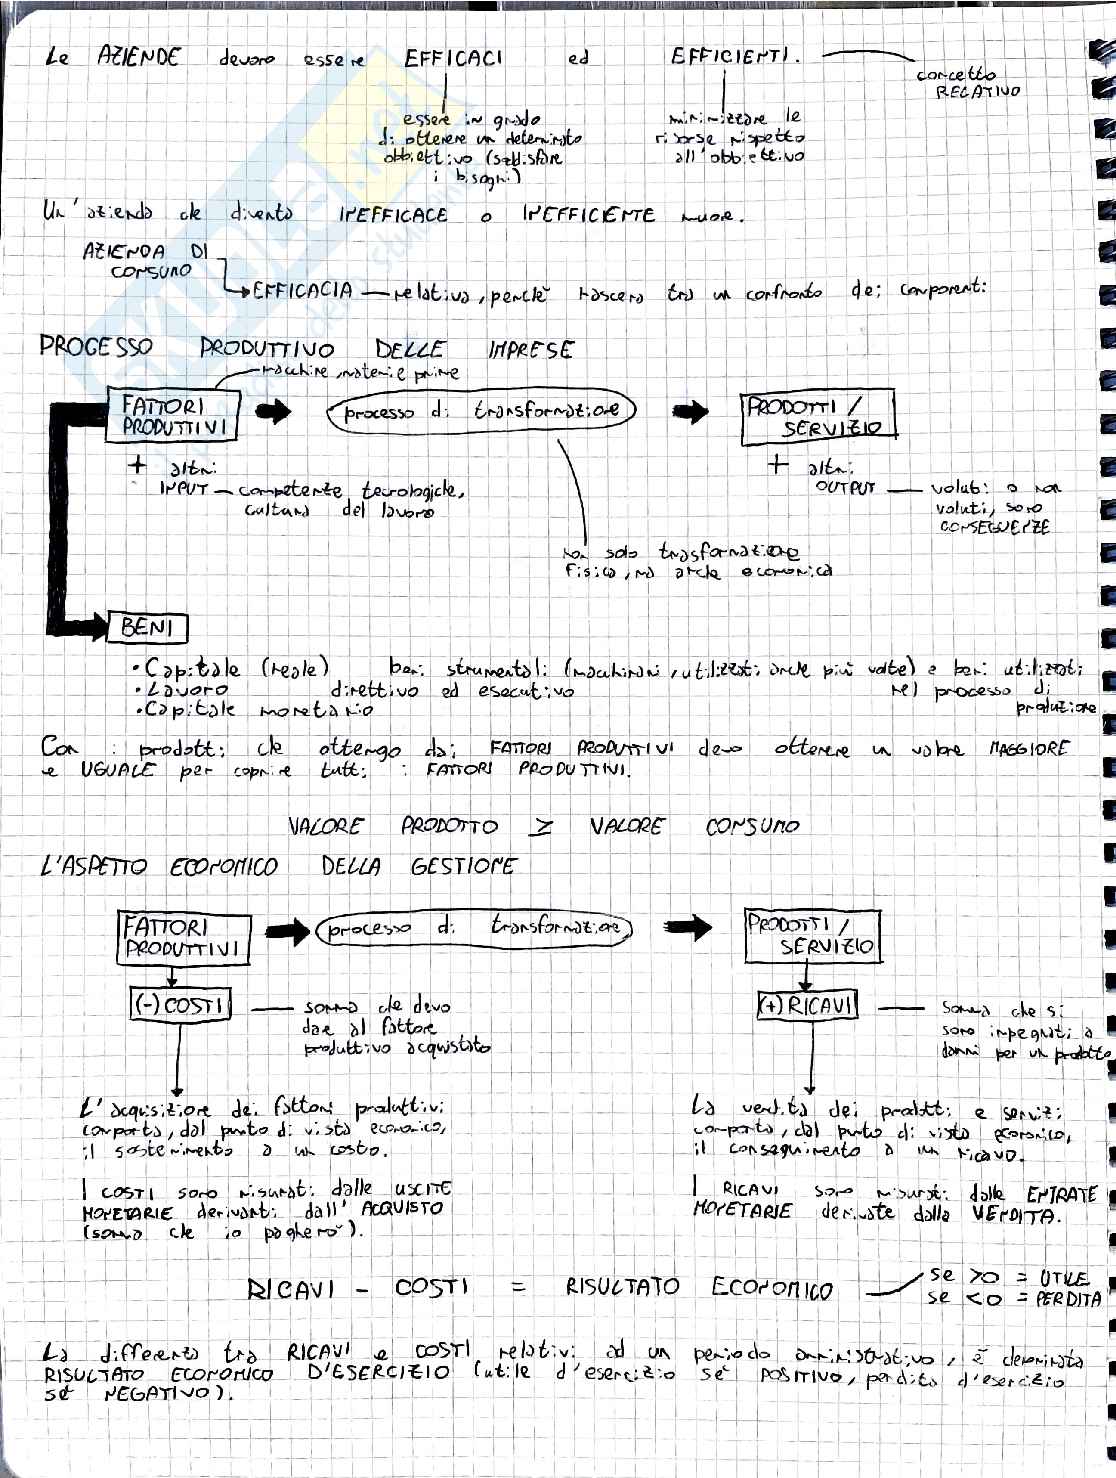 Le AZIENDE devono essere EFFICACI ed EFFICIENTI.
concetto
RELATIVO
essere in grado
di ottenere un determinato
obbiettivo (soddisfare
i bisogni)
minimizzare le
risorse rispetto
all'obbiettivo
Un'azienda che diventa INEFFICACE o INEFFICIENTE muore.
AZIENDA DI
CONSUMO
EFFICACIA — relativa, perchè nascera tra un confronto dei componenti
PROCESSO PRODUTTIVO DELLE IMPRESE
macchine, materie prime
FATTORI
PRODUTTIVI
processo di transformazione
PRODOTTI /
SERVIZIO
+ altri
INPUT — competenze tecnologiche,
cultura del lavoro
+ altri
OUTPUT — voluti o non
voluti, sono
CONSEGUENZE
non solo trasformazione
fisica, ma anche economica
BENI
• Capitale (reale) beni strumentali (macchinari, utilizzati anche più volte) e beni utilizzati
nel processo di
produzione
• Lavoro direttivo ed esecutivo
• Capitale monetario
Con i prodotti che ottengo dai FATTORI PRODUTTIVI devo ottenere un valore MAGGIORE
e UGUALE per coprire tutti i FATTORI PRODUTTIVI.
VALORE PRODOTTO ≥ VALORE CONSUMO
L'ASPETTO ECONOMICO DELLA GESTIONE
FATTORI
PRODUTTIVI
processo di transformazione
PRODOTTI /
SERVIZIO
(-) COSTI — somma che devo
dare al fattore
produttivo acquistato
(+) RICAVI — somma che si
sono impegnati a
darmi per un prodotto
L'acquisizione dei fattori produttivi
comporta, dal punto di vista economico,
il sostenimento a un costo.
I COSTI sono misurati dalle USCITE
MONETARIE derivanti dall'ACQUISTO
(somma che io pagherò).
La vendita dei prodotti e servizi
comporta, dal punto di vista economico,
il conseguimento a un ricavo.
I RICAVI sono misurati dalle ENTRATE
MONETARIE derivate dalla VENDITA.
RICAVI - COSTI = RISULTATO ECONOMICO
se >0 = UTILE
se <0 = PERDITA
La differenza tra RICAVI e COSTI relativi ad un periodo amministrativo, è denominata
RISULTATO ECONOMICO D'ESERCIZIO (utile d'esercizio se POSITIVO, perdita d'esercizio
se NEGATIVO).